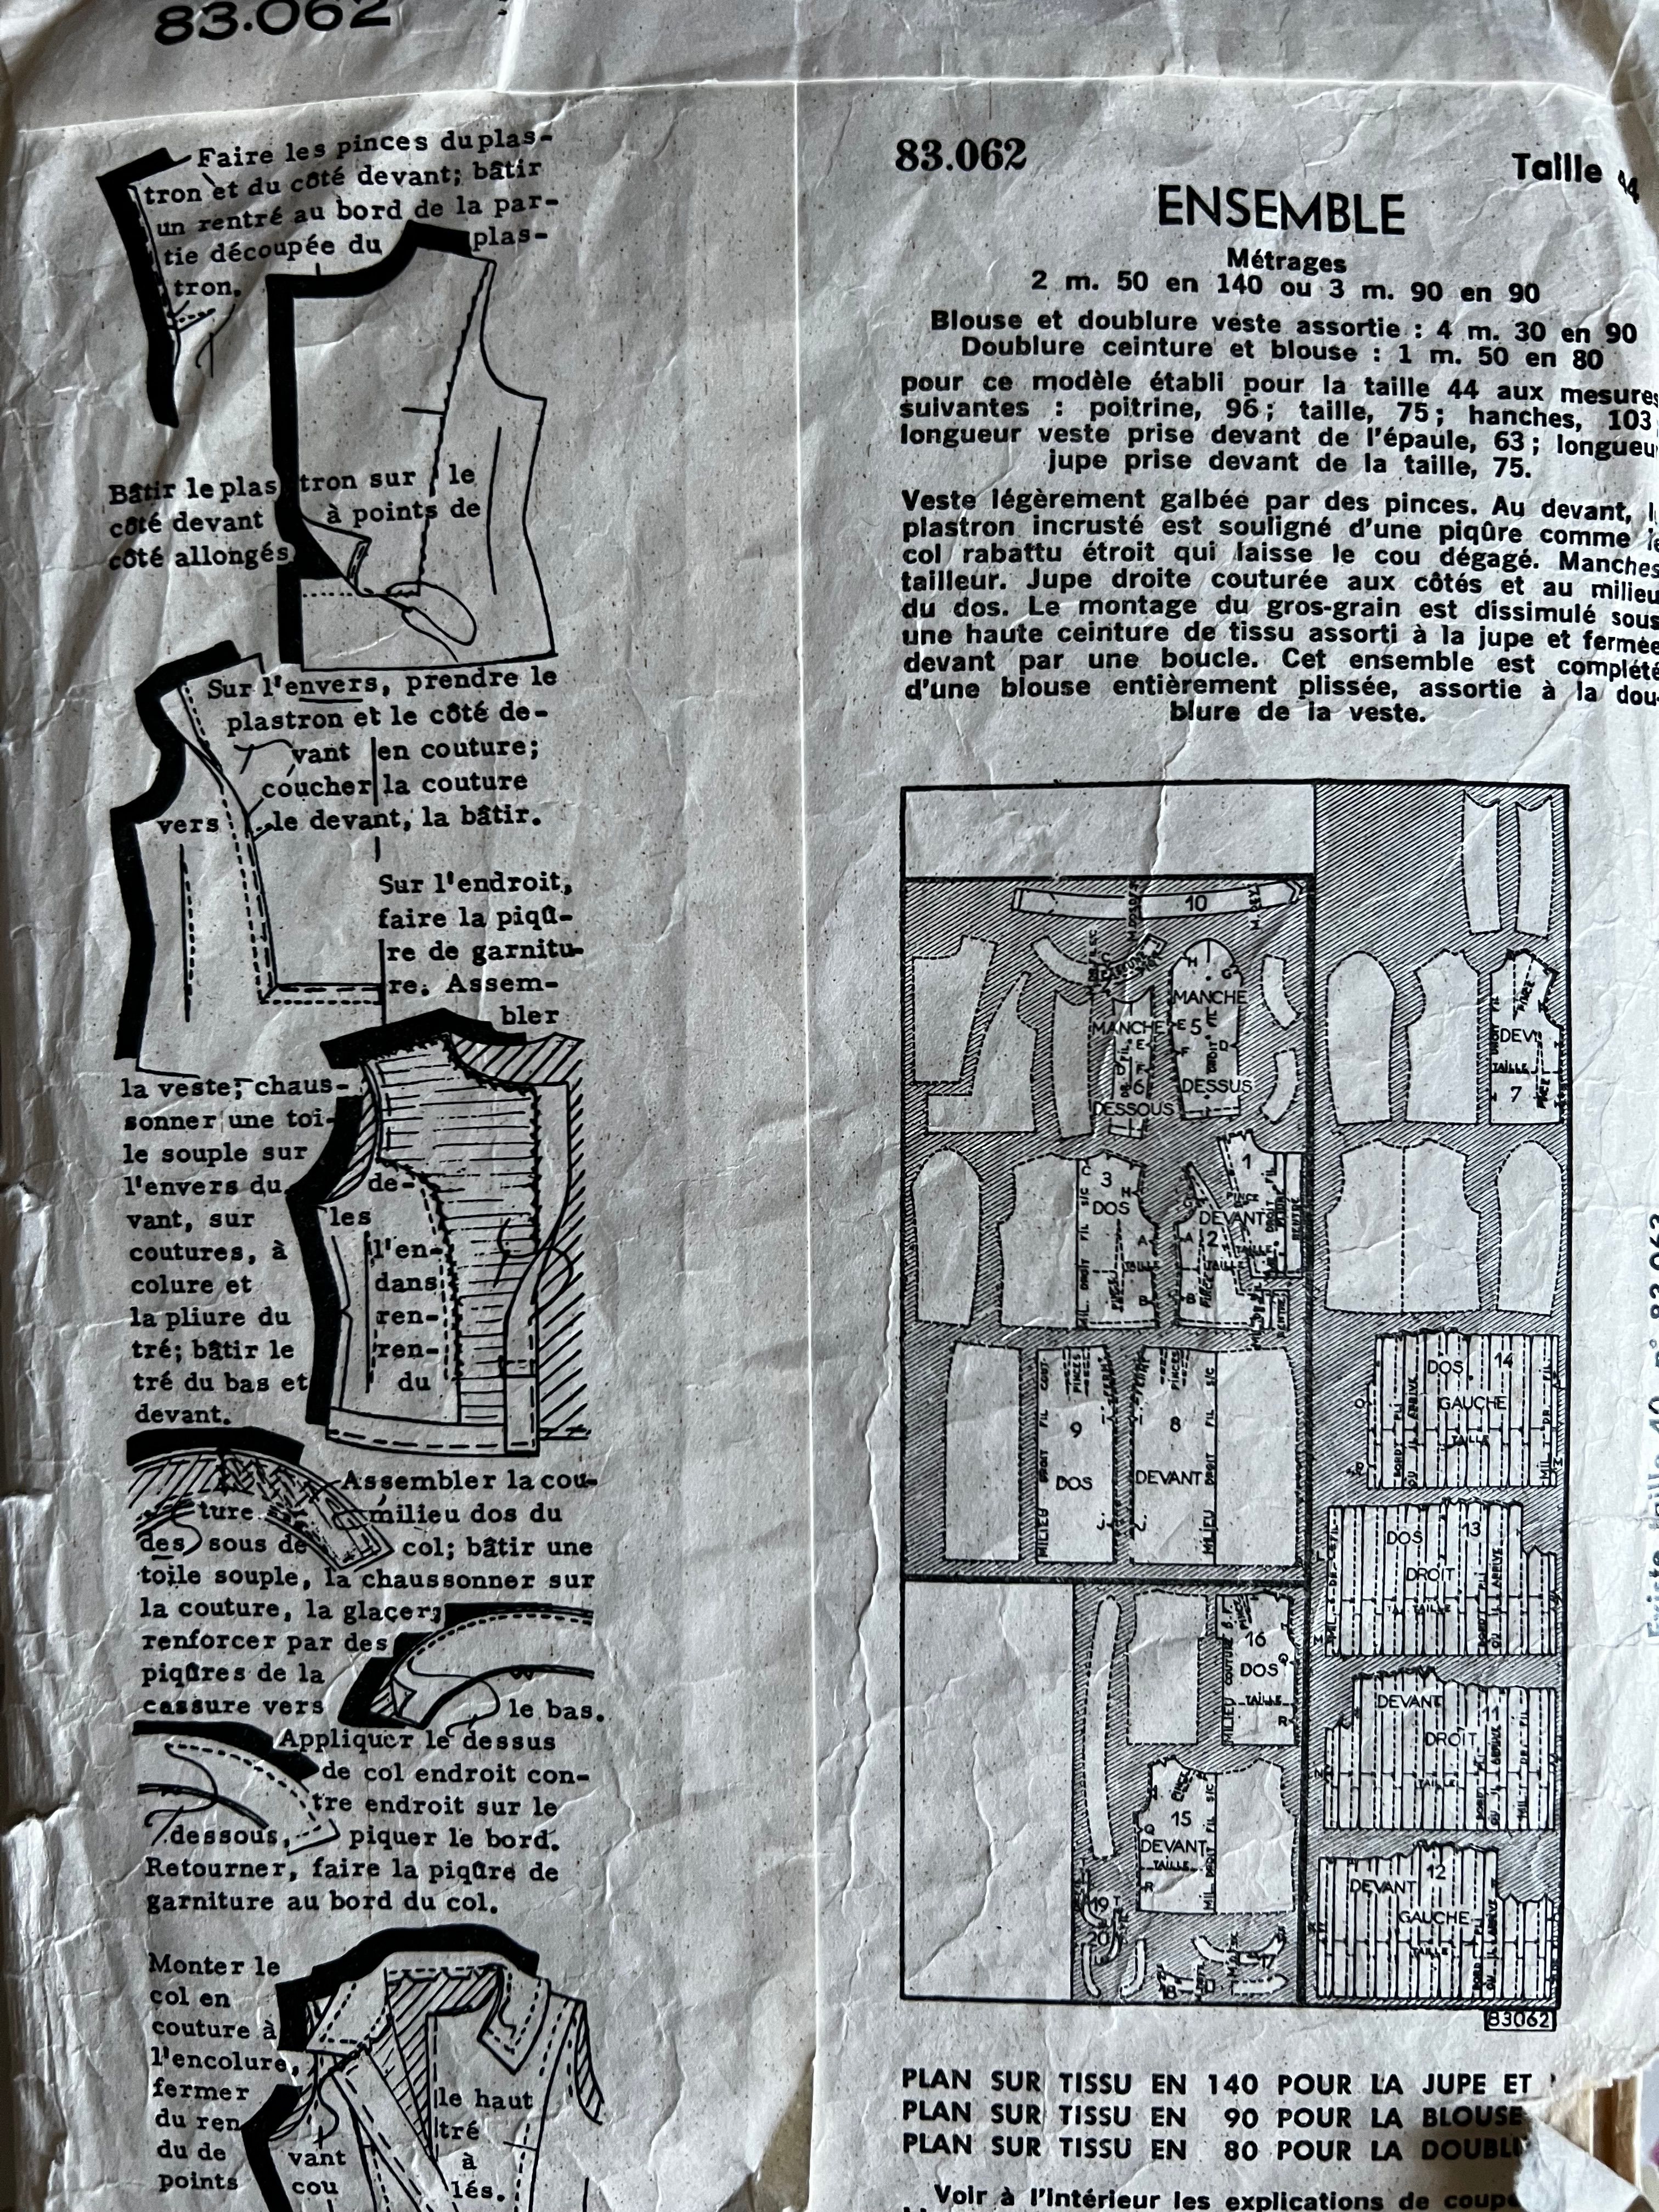 83.062
Faire les pinces du plas-
tron et du côté devant; bâtir
un rentré au bord de la par-
tie découpée du plas-
tron.
Bâtir le plas tron sur le
côté devant à points de
côté allongés
Sur l'envers, prendre le
plastron et le côté de-
vant en couture;
coucher la couture
vers le devant, la bâtir.
Sur l'endroit,
faire la piqû-
re de garnitu-
re. Assem-
bler
la veste; chaus-
sonner une toi-
le souple sur
l'envers du de-
vant, sur les
coutures, à l'en-
colure et dans
la pliure du ren-
tré; bâtir le ren-
tré du bas et du
devant.
Assembler la cou-
ture milieu dos du
des sous de col; bâtir une
toile souple, la chaussonner sur
la couture, la glacer;
renforcer par des
piqûres de la
cassure vers le bas.
Appliquer le dessus
de col endroit con-
tre endroit sur le
dessous, piquer le bord.
Retourner, faire la piqûre de
garniture au bord du col.
Monter le
col en
couture à
l'encolure,
fermer le haut
du ren tré
du de vant à
points cou lés.
83.062
Taille 44
ENSEMBLE
Métrages
2 m. 50 en 140 ou 3 m. 90 en 90
Blouse et doublure veste assortie : 4 m. 30 en 90
Doublure ceinture et blouse : 1 m. 50 en 80
pour ce modèle établi pour la taille 44 aux mesures
suivantes : poitrine, 96; taille, 75; hanches, 103
longueur veste prise devant de l'épaule, 63; longueu
jupe prise devant de la taille, 75.
Veste légèrement galbée par des pinces. Au devant, l
plastron incrusté est souligné d'une piqûre comme le
col rabattu étroit qui laisse le cou dégagé. Manches
tailleur. Jupe droite couturée aux côtés et au milieu
du dos. Le montage du gros-grain est dissimulé sous
une haute ceinture de tissu assorti à la jupe et fermée
devant par une boucle. Cet ensemble est complété
d'une blouse entièrement plissée, assortie à la dou-
blure de la veste.
10
MANCHE
5
DESSUS
MANCHE
6
DESSOUS
DEV
TAILLE
7
PINCE
3
DOS
1
DEVANT
2
9
DOS
8
DEVANT
MILIEU DROIT FIL
DOS 14
GAUCHE
TAILLE
DOS 13
DROIT
TAILLE
DEVANT
11
DROIT
12
DEVANT
GAUCHE
16
DOS
TAILLE
15
DEVANT
TAILLE
19
20
17
18
83062
PLAN SUR TISSU EN 140 POUR LA JUPE ET
PLAN SUR TISSU EN 90 POUR LA BLOUSE
PLAN SUR TISSU EN 80 POUR LA DOUBLU
Voir à l'intérieur les explications de coupe